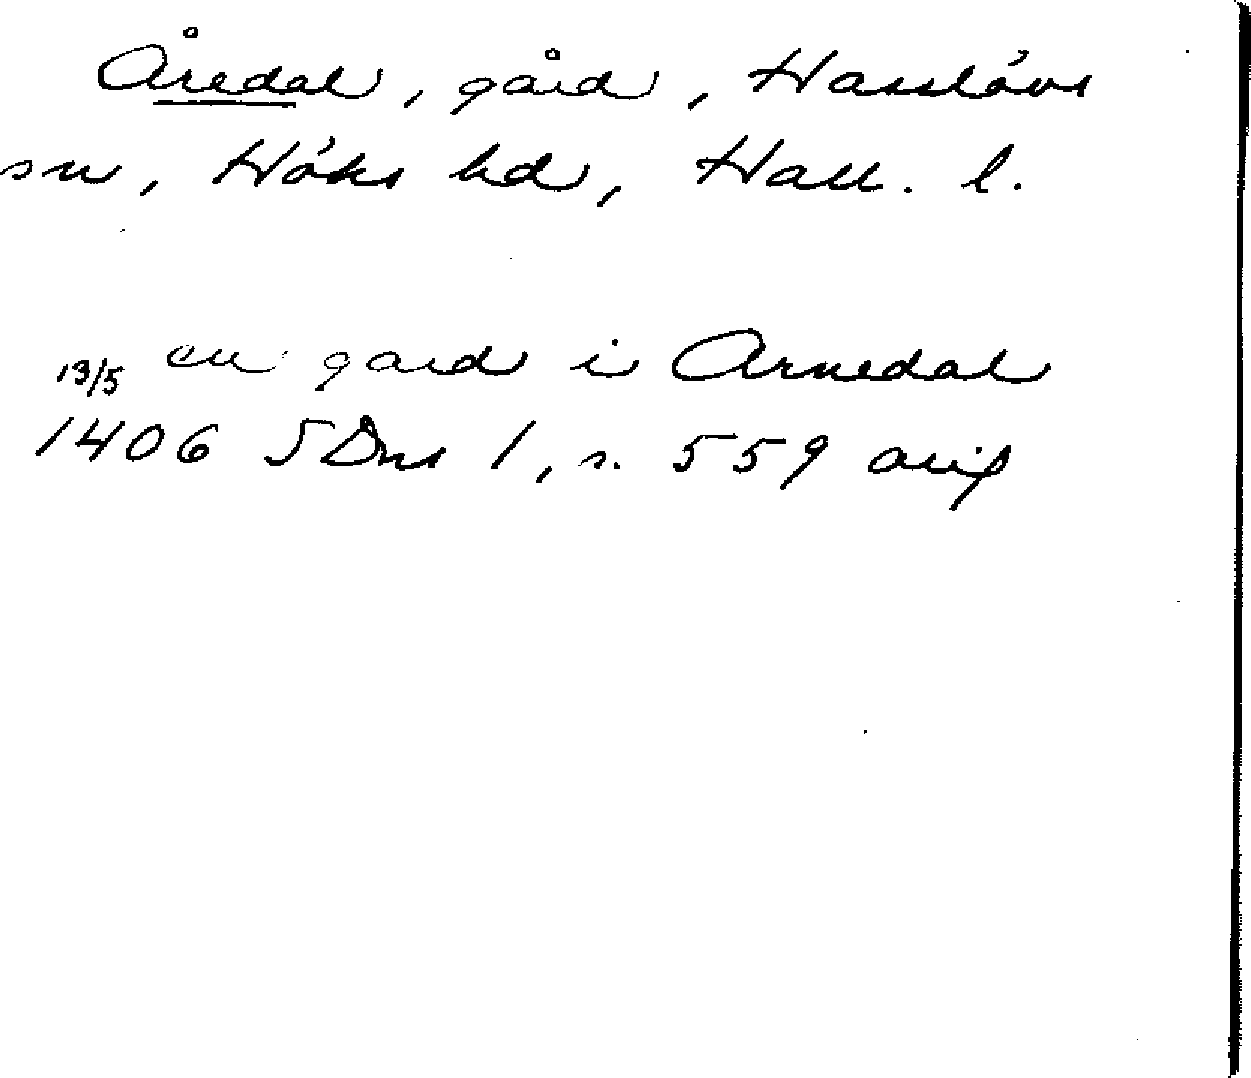 Åredal, gård, Hasslövs
sn, Höks hd, Hall. l.
en gard i Arnedal
13/5 1406 SDns 1, s. 559 avsk